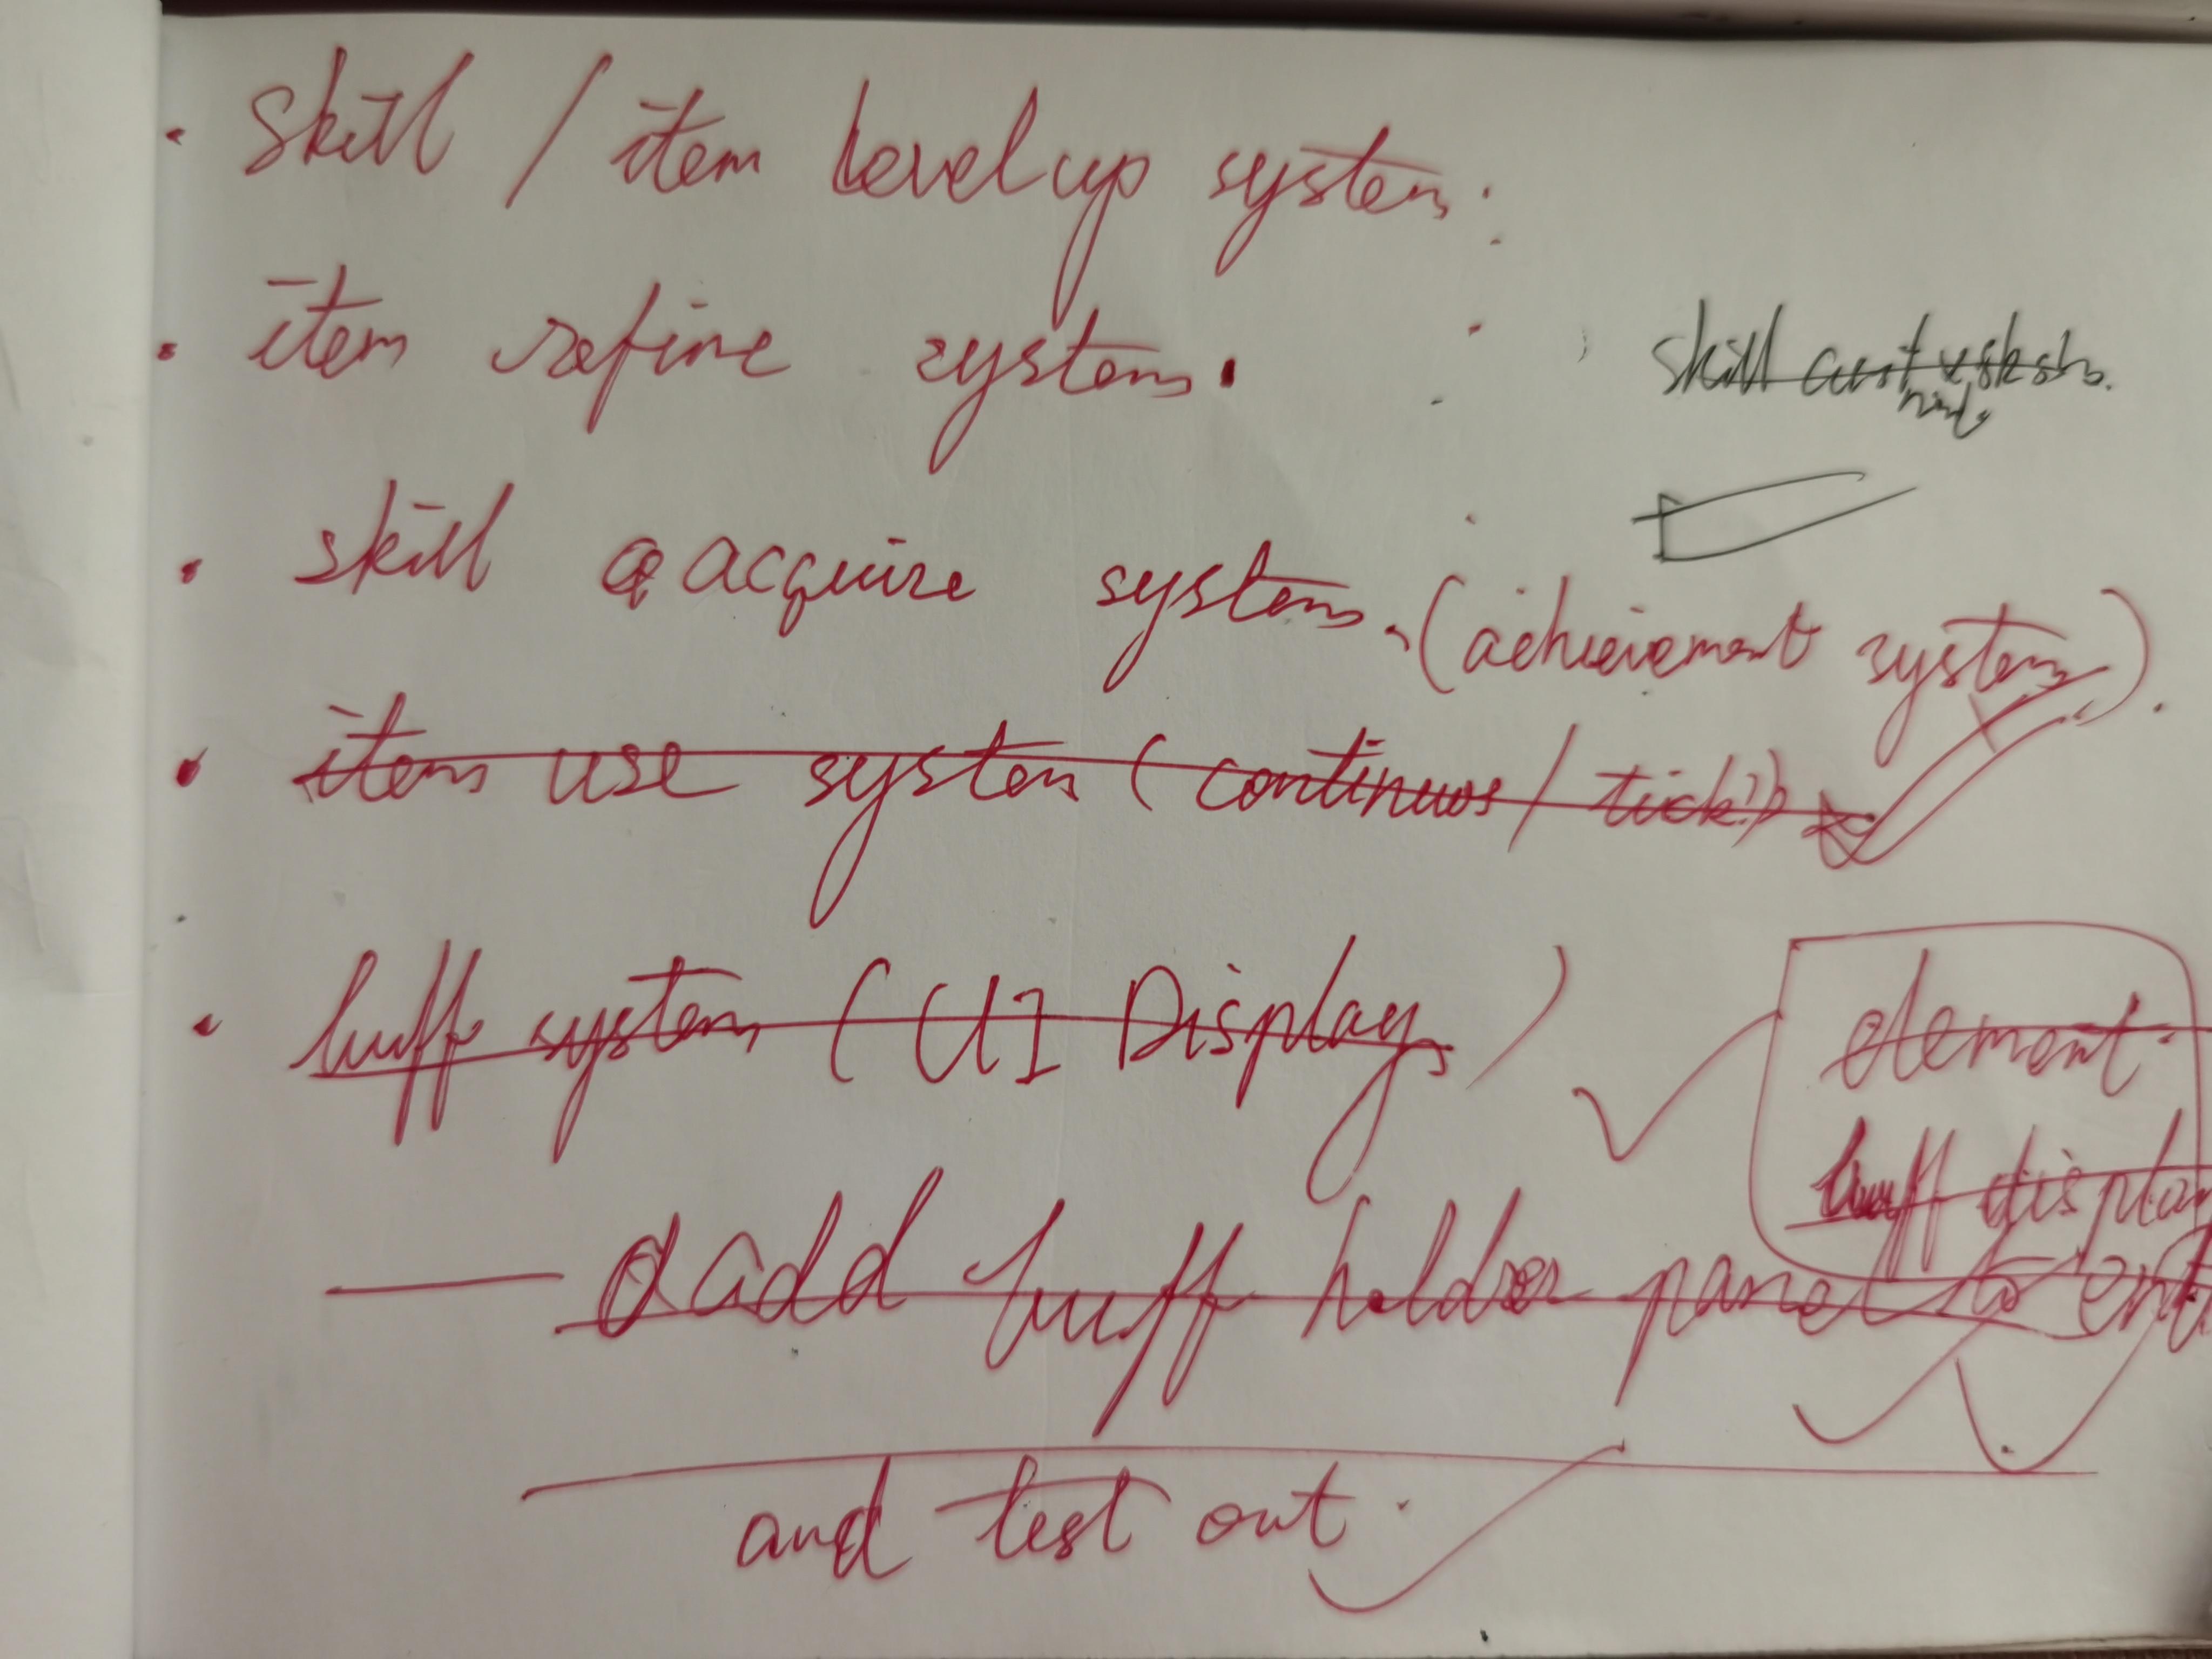 · skill / item level up system.
· item refine system.
skill
· skill acquire system. (achievement system).
· item use system (continuos / tick)
· buff system (UI Display)
element.
buff display
— add buff holder panel to
and test out.